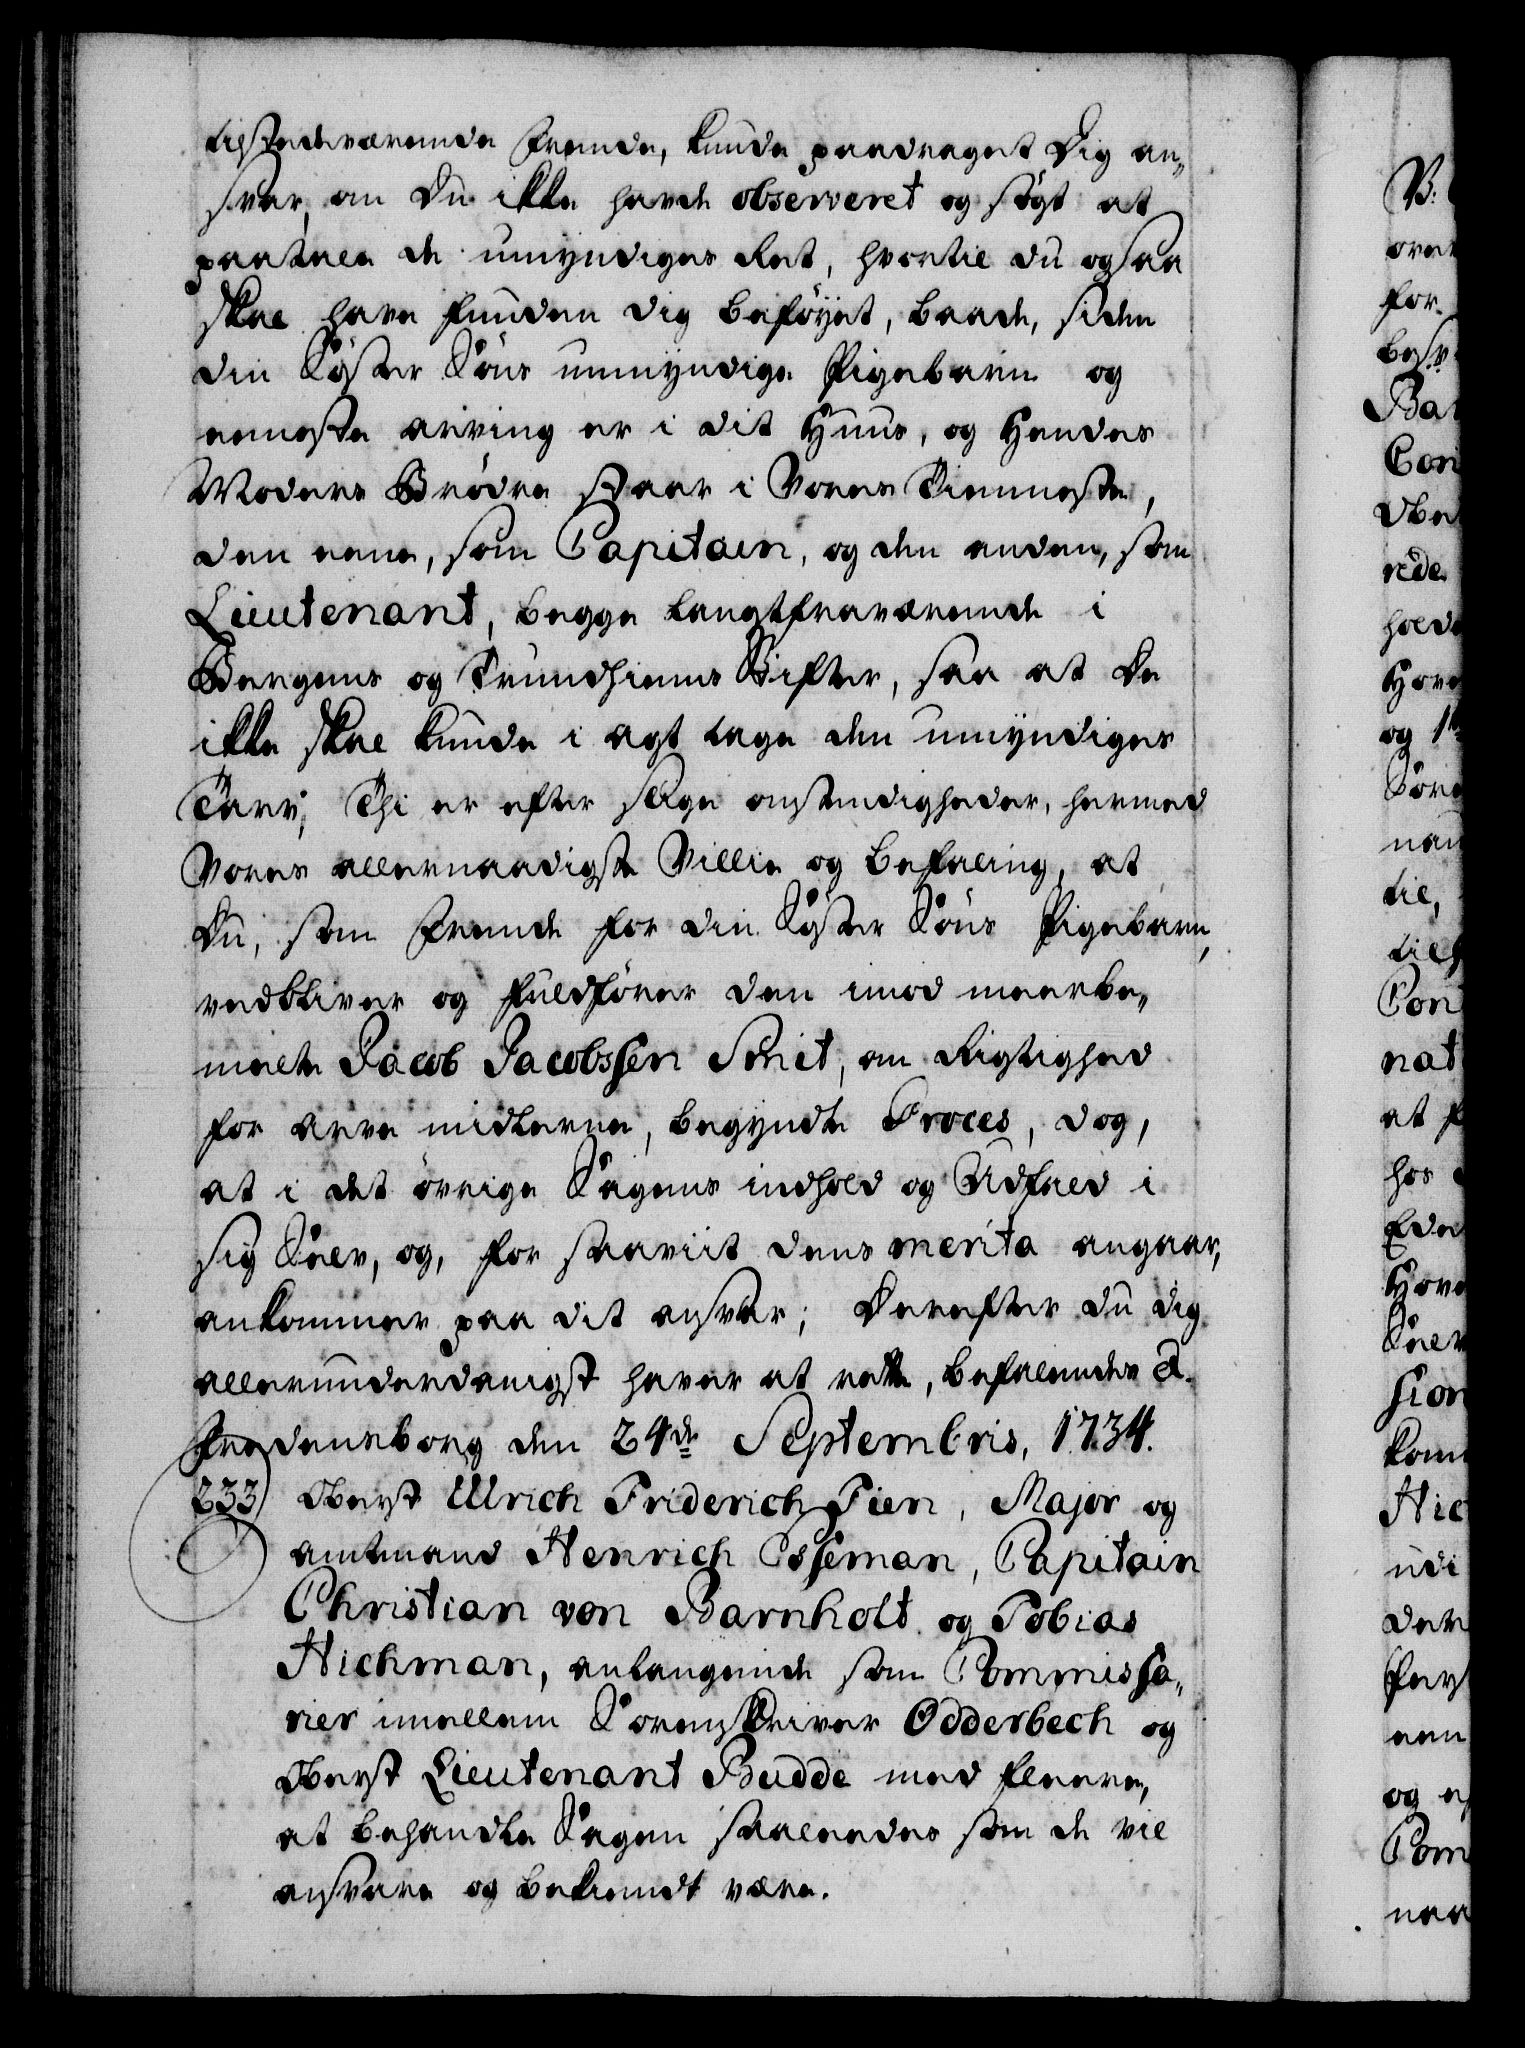 tilstedeværende Frende, kunde paadraget Dig an„
svar, om Du ikke havde observeret og søgt at
paatale de umyndiges Ret, hvortil du ogsaa
skal have funden dig beføyet, baade, siden
din Søster Søns umyndige Pigebarn og
eeneste arving er i dit Huus, og Hendes
Moders Brødre staar i Vores Tienneste,
den eene, som Capitain, og den anden, som
Lieutenant, begge langtfraværende i
Bergens og Trundhiems Stifter, saa at De
ikke skal kunde i agt tage den umyndiges
Tarv; Thi er efter slige omstendigheder, hermed
Vores allernaadigste Villie og befaling, at
Du, som Frende for din Søster Søns Pigebarn,
vedbliver og fuldfører den imod meerbe„
melte Jacob Jacobssen Smit, om Rigtighed
for arve midlerne, begyndte Proces, dog,
at i det øvrige Sagens indhold og Udfald i
sig Self, og, for saaviit dens merita angaar,
ankommer paa dit ansvar; Derefter du dig
allerunderdanigst haver at rette, befalendes &.
Fredensborg den 24de Septembris, 1734.
233) Oberst Ulrich Friderich Fien, Major og
amtmand Henrich Osseman, Capitain
Christian von Barnholt og Tobias
Hichman, anlangende som Commissa„
rier imellem Sorenskriver Odderbech og
Oberst Lieutenant Budde med fleere,
at behandle Sagen saaleedes som de vil
ansvare og bekiendt være.